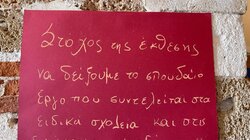 Στόχος της έκθεσης
να δείξουμε το σπουδαίο
έργο που συντελείται στα
ειδικά σχολεία και στις